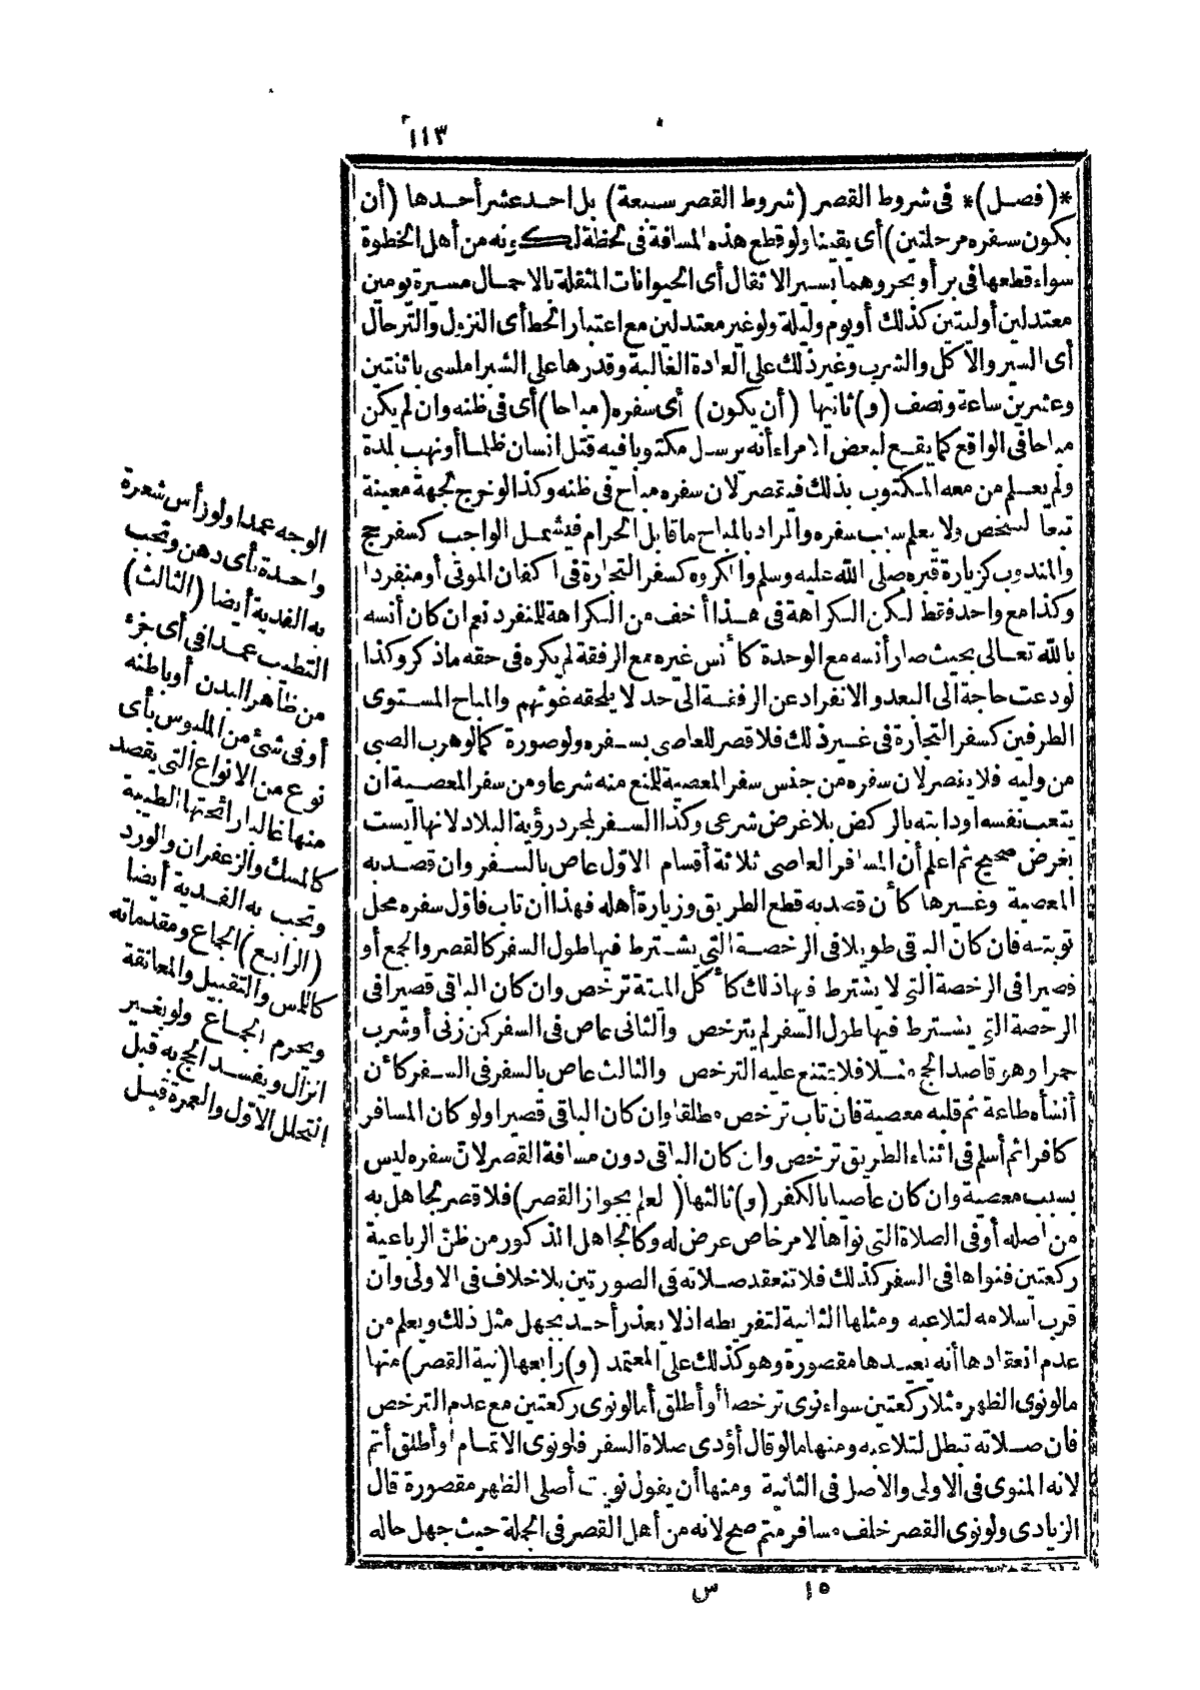 ١١٣
*(فصل)* فى شروط القصر (شروط القصر سبعة) بل احد عشر أحدها (أن
يكون سفره مرحلتين) أى يقينا ولو قطع هذه المسافة فى لحظة لكونه من أهل الخطوة
سواء قطعها فى بر أو بحر وهما بسير الاثقال أى الحيوانات المثقلة بالاحمال مسيرة يومين
معتدلين أو ليلتين كذلك أو يوم وليلة ولو غير معتدلين مع اعتبار الحط أى النزول والترحال
أى السير والأكل والشرب وغير ذلك على العادة الغالبة وقدرها على الشبراملسى باثنتين
وعشرين ساعة ونصف (و) ثانيها (أن يكون) أى سفره (مباحا) أى فى ظنه وان لم يكن
مباحا فى الواقع كما يقع لبعض الامراء أنه يرسل مكتوبا فيه قتل انسان ظلما أو نهب بلدة
ولم يعلم من معه المكتوب بذلك فيقصر لان سفره مباح فى ظنه وكذا لو خرج لجهة معينة
تبعا لشخص ولا يعلم سبب سفره والمراد بالمباح ما قابل الحرام فيشمل الواجب كسفر حج
والمندوب كزيارة قبره صلى الله عليه وسلم والمكروه كسفر التجارة فى اكفان الموتى أو منفردا
وكذا مع واحد فقط لكن الكراهة فى هذا أخف من الكراهة للمنفرد نعم ان كان أنسه
بالله تعالى بحيث صار أنسه مع الوحدة كأنس غيره مع الرفقة لم يكره فى حقه ماذكر وكذا
لو دعت حاجة الى البعد والانفراد عن الرفقة الى حد لا يلحقه غوثهم والمباح المستوى
الطرفين كسفر التجارة فى غير ذلك فلا قصر للعاصى بسفره ولو صورة كما لو هرب الصبى
من وليه فلا يقصر لان سفره من جنس سفر المعصية للمنع منه شرعا ومن سفر المعصية ان
يتعب نفسه او دابته بالركض بلا غرض شرعى وكذا السفر لمجرد رؤية البلاد لانها ليست
بغرض صحيح ثم اعلم أن المسافر العاصى ثلاثة أقسام الاوّل عاص بالسفر وان قصد به
المعصية وغيرها كأن قصد به قطع الطريق وزيارة أهله فهذا ان تاب فاوّل سفره محل
توبته فان كان الباقى طويلا فى الرخصة التى يشترط فيها طول السفر كالقصر والجمع أو
قصيرا فى الرخصة التى لا يشترط فيها ذلك كأكل الميتة ترخص وان كان الباقى قصيرا فى
الرخصة التى يشترط فيها طول السفر لم يترخص والثانى عاص فى السفر كمن زنى أو شرب
خمرا وهو قاصد الحج مثلا فلا يمتنع عليه الترخص والثالث عاص بالسفر فى السفر كأن
أنشأه طاعة ثم قلبه معصية فان تاب ترخص مطلقا وان كان الباقى قصيرا ولو كان المسافر
كافرا ثم أسلم فى اثناء الطريق ترخص وان كان الباقى دون مسافة القصر لان سفره ليس
بسبب معصية وان كان عاصيا بالكفر (و) ثالثها (لعلم بجواز القصر) فلا قصر لجاهل به
من اصله أو فى الصلاة التى نواها لامر خاص عرض له وكالجاهل المذكور من ظنّ الرباعية
ركعتين فنواها فى السفر كذلك فلا تنعقد صلاته فى الصورتين بلا خلاف فى الاولى وان
قرب اسلامه لتلاعبه ومثلها الثانية لتفريطه اذ لا يعذر أحد بجهل مثل ذلك ويعلم من
عدم انعقادها أنه يعيدها مقصورة وهو كذلك على المعتمد (و) رابعها (نية القصر) منها
مالو نوى الظهر مثلا ركعتين سواء نوى ترخصا أو أطلق أما لو نوى ركعتين مع عدم الترخص
فان صلاته تبطل لتلاعبه ومنها مالو قال أؤدى صلاة السفر فلو نوى الاتمام أو أطلق أتم
لانه المنوى فى الاولى والاصل فى الثانية ومنها أن يقول نويت أصلى الظهر مقصورة قال
الزيادى ولو نوى القصر خلف مسافر متم صح لانه من أهل القصر فى الجملة حيث جهل حاله
الوجه عمدا ولو رأس شعرة
واحدة بأى دهن وتجب
به الفدية أيضا (الثالث)
التطيب عمدا فى أى جزء
من ظاهر البدن أو باطنه
أو فى شئ من الملبوس بأى
نوع من الانواع التى يقصد
منها غالبا رائحتها الطيبة
كالمسك والزعفران والورد
وتجب به الفدية أيضا
(الرابع) الجماع ومقدماته
كاللمس والتقبيل والمعانقة
ويحرم الجماع ولو بغير
انزال ويفسد الحج به قبل
التحلل الاوّل والعمرة قبل
١٥ س